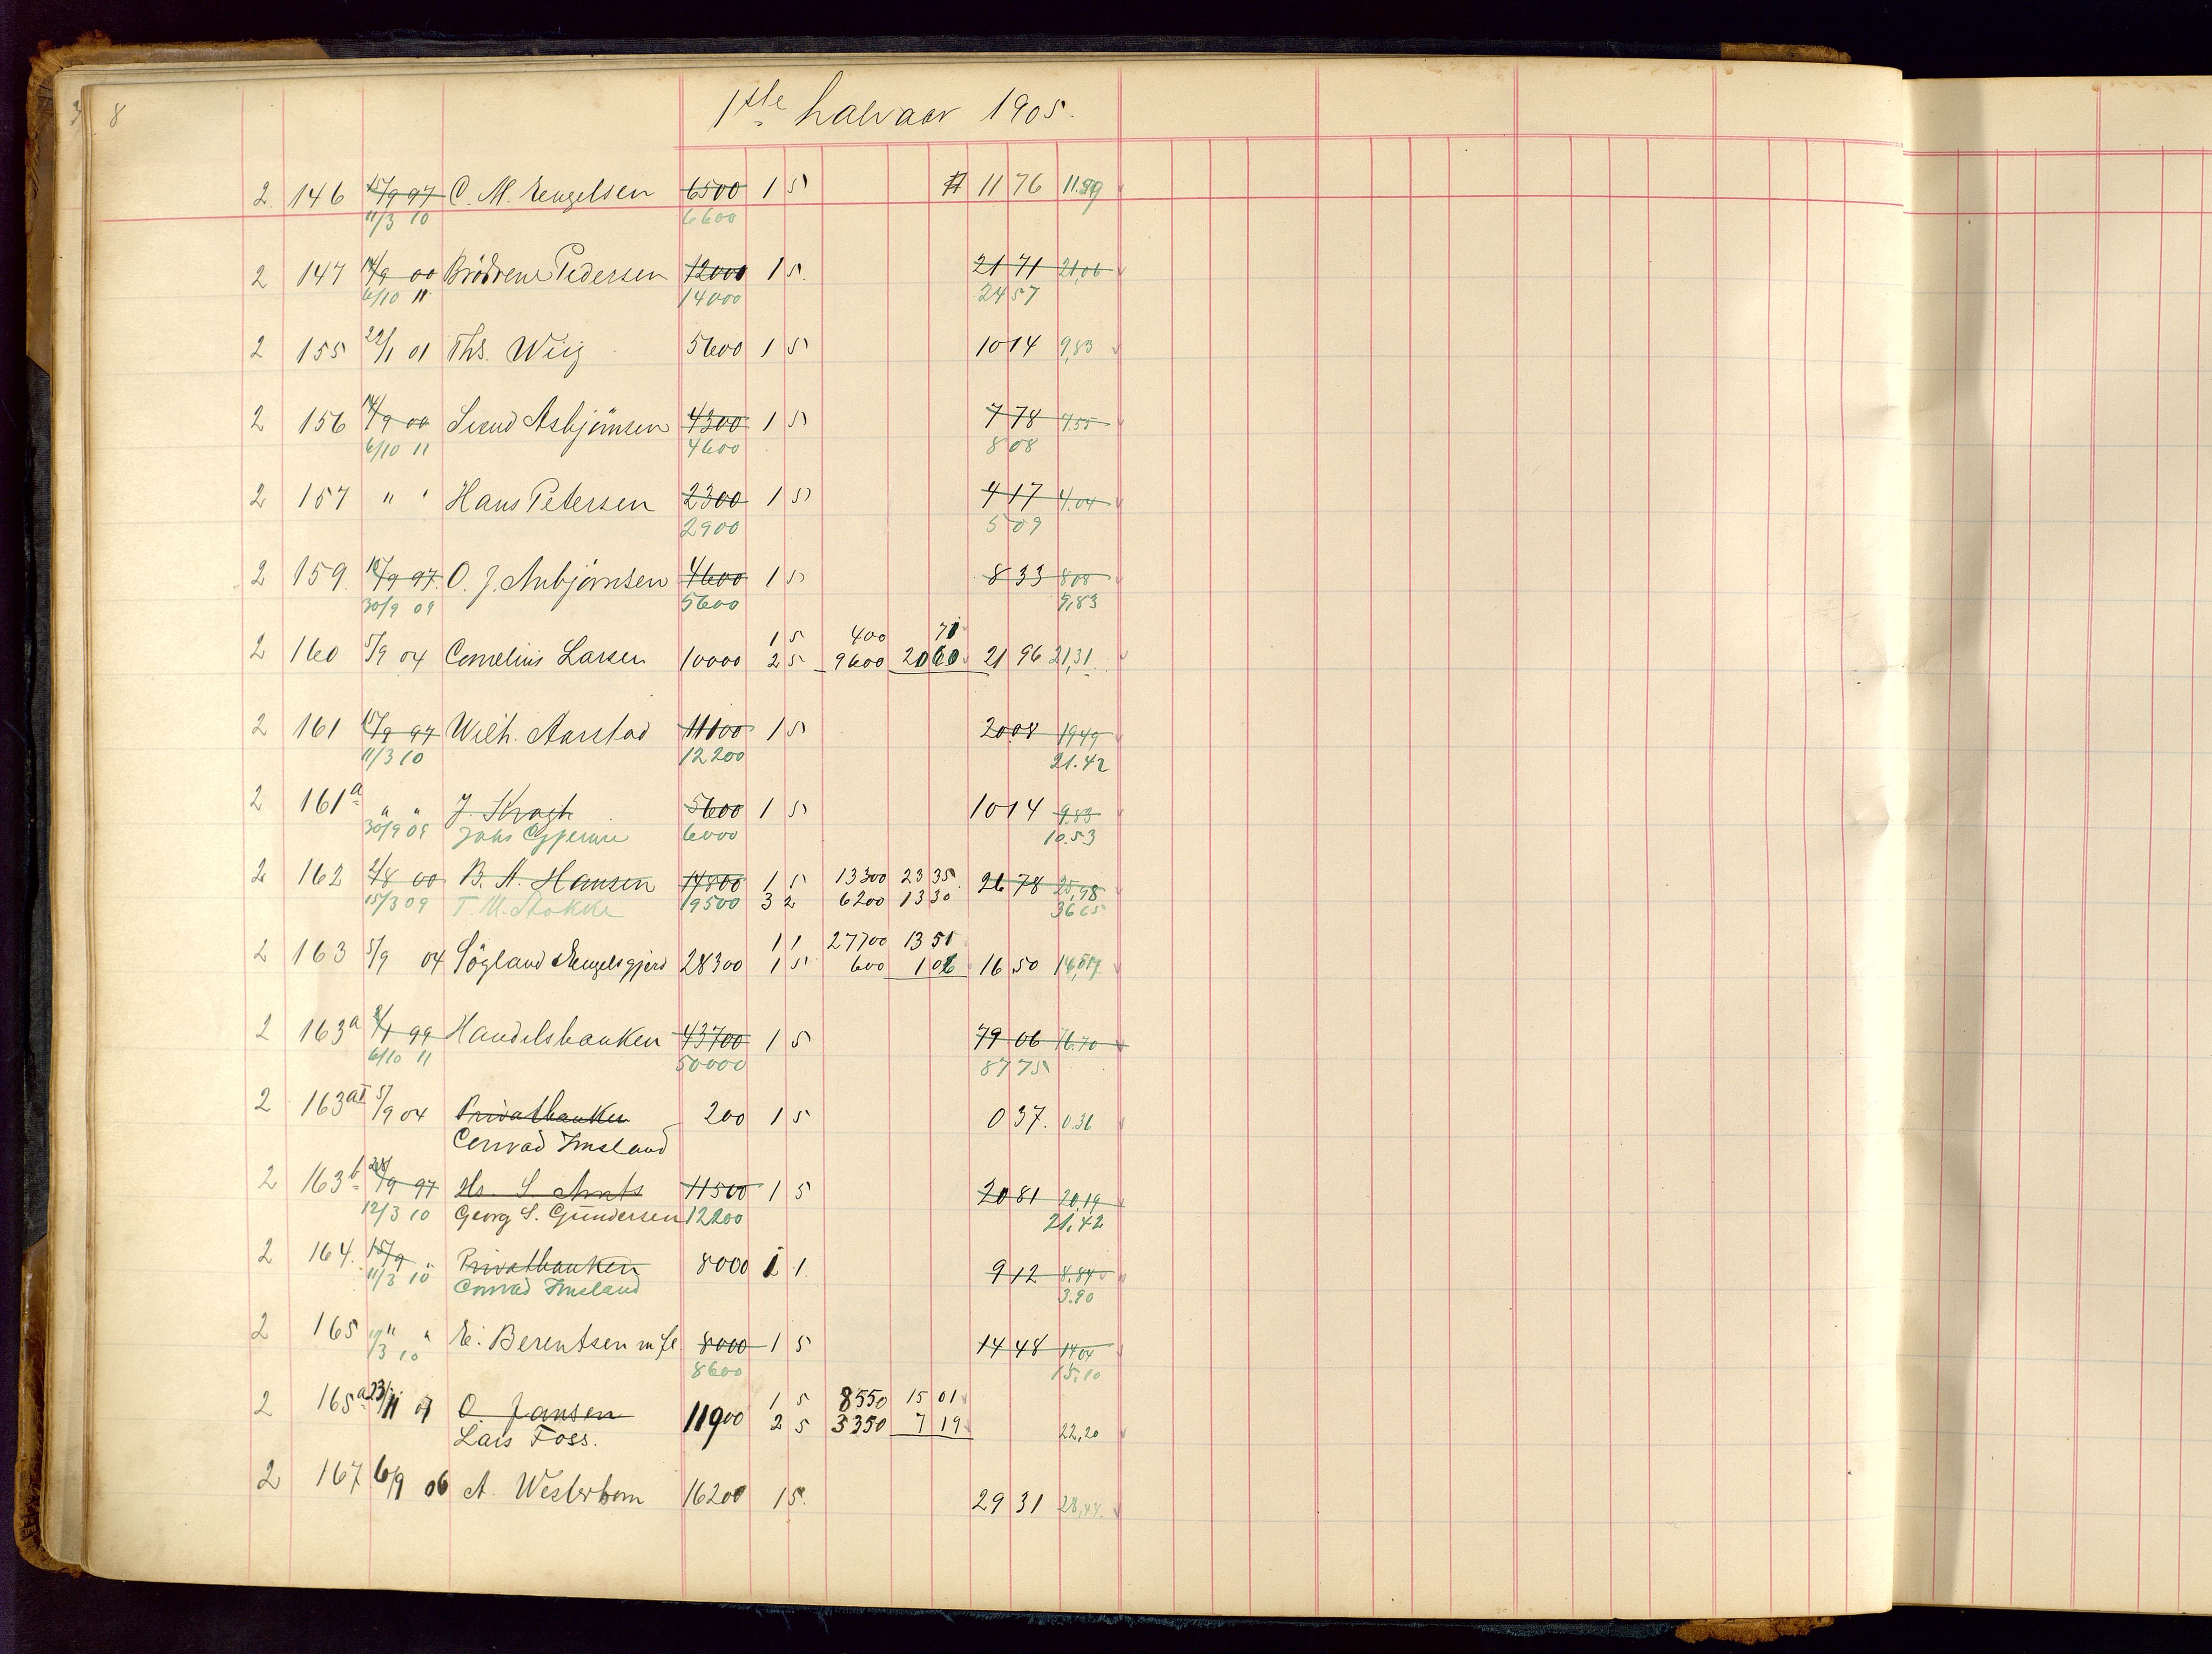 8
1ste halvaar 1905.
2 146 15/9 97 C. M. Engelsen 6500 1 5 11 76 11.59
11/3 10 6600
2 147 14/9 00 Brödrene Pedersen 12000 1 5. 21 71 21,06
6/10 11 14000 24 57
2 155 22/1 01 Ths. Wiig 5600 1 5 10 14 9,83
2 156 14/9 00 Svend Asbjörnsen 4300 1 5 7 78 7,55
6/10 11 4600 8 08
2 157 " " Hans Petersen 2300 1 5 4 17 4.04
2900 5 09
2 159. 15/9 97. O. J. Anbjörnsen 4600 1 5 8 33 8 08
30/9 09 5600 9,83
1 5 400 71
2 160 5/9 04 Cornelius Larsen 10000 2 5 9600 20 60 21 96 21,31
2 161 15/9 97 Wilh. Aarstad 11100 1 5 20 08 19 49
11/3 10 12200 21.42
2 161a " " J. Kragh 5600 1 5 10 14 9.83
30/9 09 Johs 6000 10.53
2 162 2/8 00 B. A. Hansen 14800 1 5 13300 23 35 26 78 25,98
15/3 09 T. M. Stokke 19500 3 2 6200 13 30 36 65
1 1 27700 13 51
2 163 5/9 04 Sögland 28300 1 5 600 1 06 16 50
2 163a 99 Handelsbanken 43700 1 5 79 06 76.70
6/10 11 50000 87 75
2 163aI 5/9 04 Privatbanken 200 1 5 0 37. 0.36
Conrad Imsland
2 163b 9 97 S. 11500 1 5 20 81 20,19
12/3 10 Georg S. Gundersen 12200 21.42
2 164. 15/9 " Privatbanken 8000 1 1. 9 12 8.84
11/3 10 Conrad Imsland 3.90
2 165 " " E. Berentsen m fl 8000 1 5 14 48 14 04
/3 10 8600 15.10
2 165a 23/11 07 O. Jansen 11900 1 5 8550 15 01
Lars Foss. 2 5 3350 7 19 22,20
2 167 6/9 06 A. Westerbom 16200 1 5. 29 31 28,44